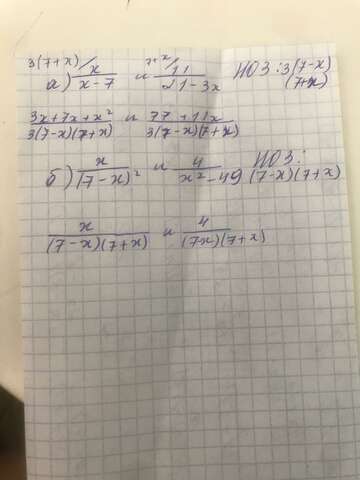 3(7+x)/ 7+x/
а) x/(x-7) и 11/(21-3x) НОЗ: 3(7-x)(7+x)
(3x+7x+x²)/(3(7-x)(7+x)) и (77+11x)/(3(7-x)(7+x))
б) x/(7-x)² и 4/(x²-49) НОЗ: (7-x)(7+x)
x/((7-x)(7+x)) и 4/((7x)(7+x))